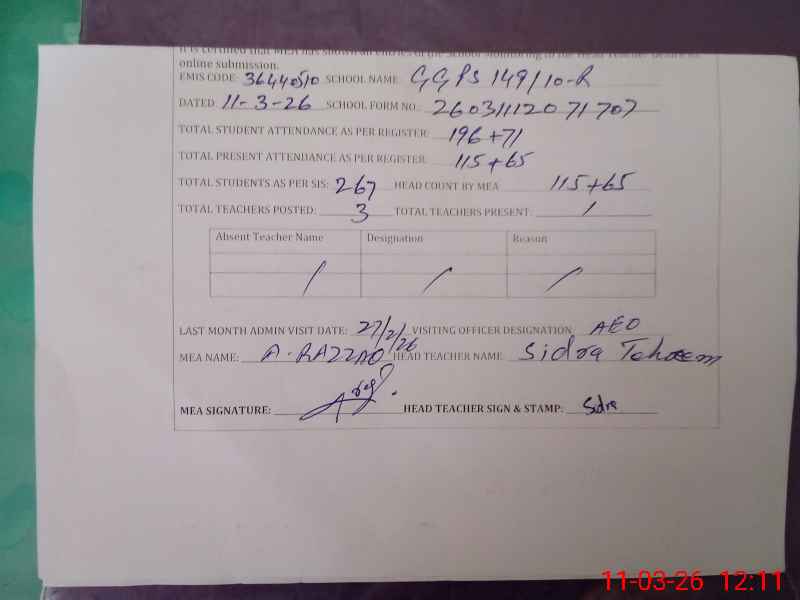 online submission.
EMIS CODE: 36440510 SCHOOL NAME: GGPS 149/10-R
DATED: 11-3-26 SCHOOL FORM NO.: 26031112071707
TOTAL STUDENT ATTENDANCE AS PER REGISTER: 196+71
TOTAL PRESENT ATTENDANCE AS PER REGISTER: 115+65
TOTAL STUDENTS AS PER SIS: 267 HEAD COUNT BY MEA 115+65
TOTAL TEACHERS POSTED: 3 TOTAL TEACHERS PRESENT: /
Absent Teacher Name Designation Reason
/ / /
LAST MONTH ADMIN VISIT DATE: 27/2/26 VISITING OFFICER DESIGNATION: AEO
MEA NAME: A. RAZZAQ HEAD TEACHER NAME: Sidra Tehreem
MEA SIGNATURE: HEAD TEACHER SIGN & STAMP: Sidra
11-03-26 12:11